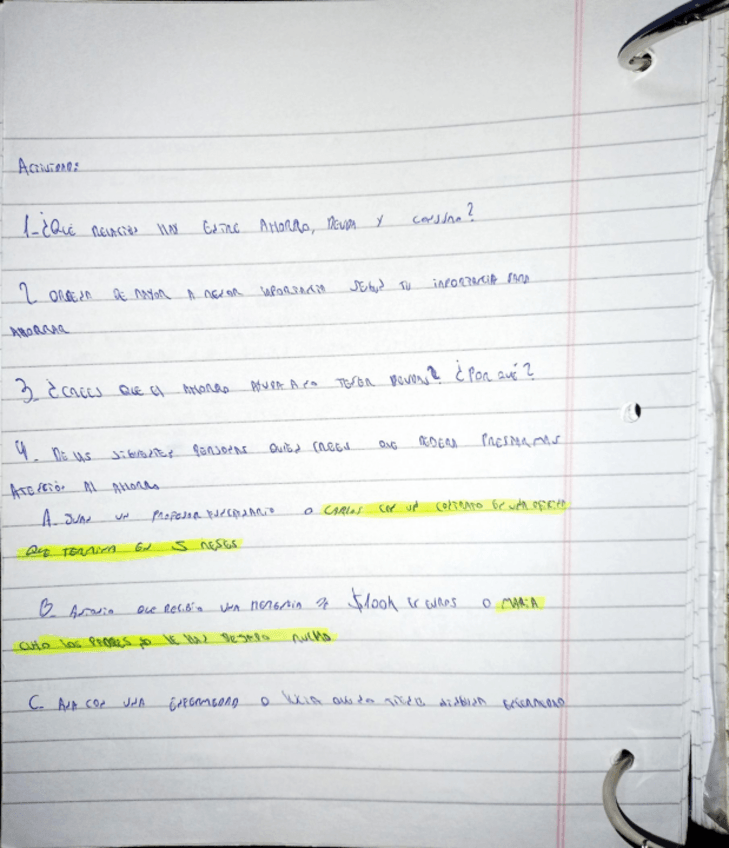 Actividad:
1-¿Qué relación hay entre ahorro, deuda y consumo?
2 ordena de mayor a menor importancia según tu importancia para
ahorrar
3_ ¿crees que el ahorro ayuda a no tener deudas? ¿Por qué?
4_ De las siguientes personas quien crees que debera prestar mas
atención al ahorro
A_ Juan un profesor universitario o Carlos con un contrato en una oficina
que termina en 5 meses
B_ Antonio que recibio una herencia de $100k de euros o Maria
cuyo los padres no le han dejado mucho
C_ Ana con una enfermedad o Lucia que no tiene ninguna enfermedad